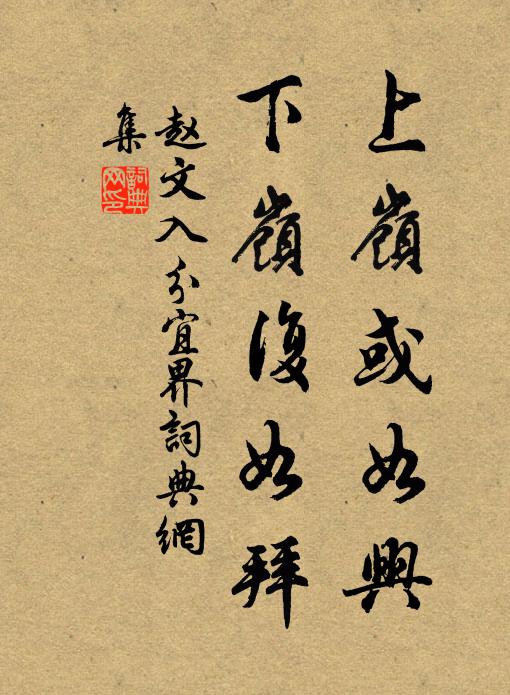 上嶺或如興
下嶺復如拜
赵文入分宜界詞典網
集
詞典
网印